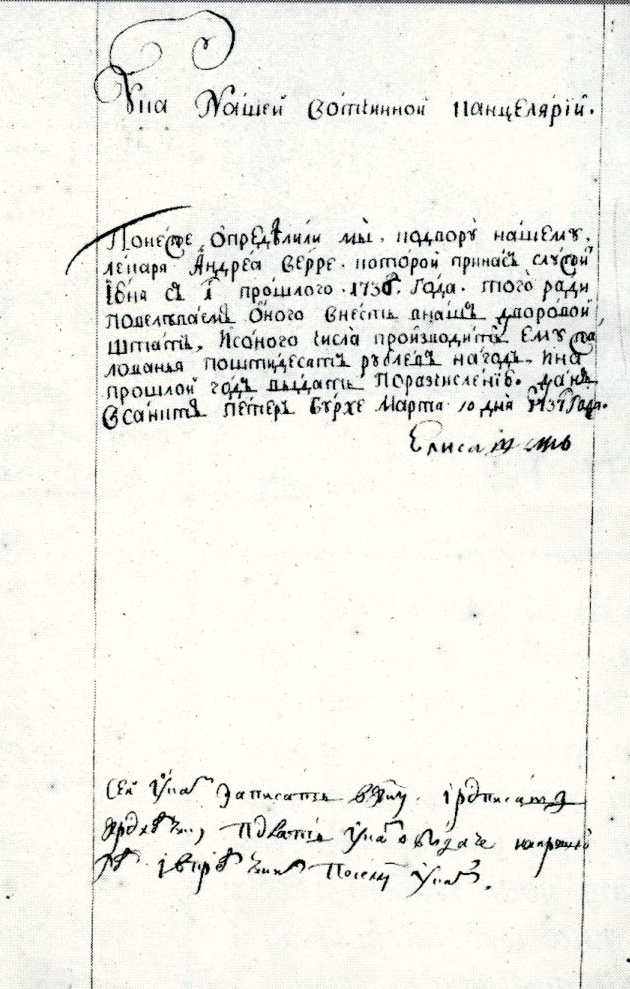 Указ Нашей вотчинной канцелярiи.
Понеже определили мы. ко двору нашему,
лекаря Андрея Верре. которой при нас служи
прошлого 1736. года. того ради
повелеваемъ оного внесть в нашъ дворовой
штатъ, и с оного числа производить ему жа
лованья по штидесятъ рублевъ на годъ. и на
прошлой годъ выдать по разчисленiю. данъ
в санктъ петеръ бурхе марта 10 дня 1737 года.
Елисаветъ
Сей указъ записать в книгу.
указ о выдаче
по сему указу.